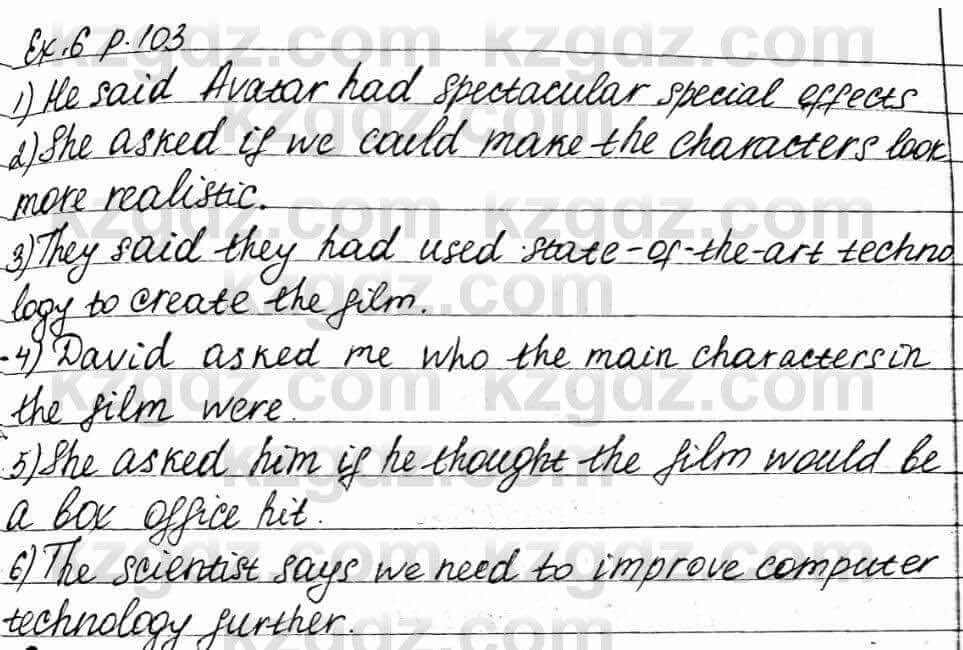 Ex.6 p.103
1) He said Avatar had spectacular special effects
2) She asked if we could make the characters look
more realistic.
3) They said they had used state-of-the-art techno
logy to create the film.
4) David asked me who the main characters in
the film were.
5) She asked him if he thought the film would be
a box office hit.
6) The scientist says we need to improve computer
technology further.